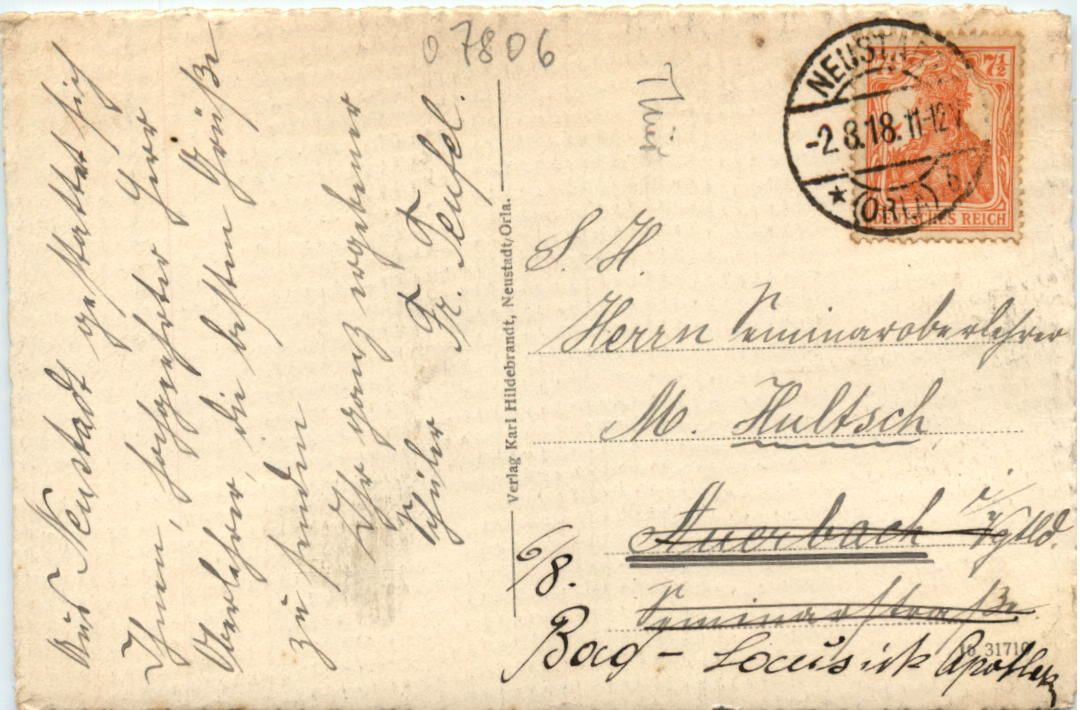 07806
Thür
Aus Neustadt gestattet sich
Ihnen, hochgeehrter Herr
Oberlehrer, die besten Grüße
zu senden
Ihr ganz ergebener
Schüler Fr. Teufel.
Verlag Karl Hildebrandt, Neustadt/Orla.
NEUSTADT
-2.8.18.11-12V
★ (ORLA) b
7½
DEUTSCHES REICH
S. H.
Herrn Seminaroberlehrer
M. Hultsch
Auerbach i/Vgtld.
Seminarstraße
6/8.
Bad-Lausick Apotheke
16 31710